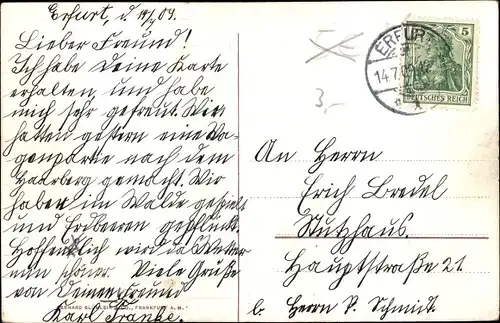 Erfurt, d. 14/7 09.
Lieber Freund!
Ich habe Deine Karte
erhalten, und habe
mich sehr gefreut. Wir
hatten gestern eine Wa-
genpartie nach dem
Haarberg gemacht. Wir
haben im Walde gespielt
und Erdbeeren gepflückt.
Hoffentlich wird das Wetter
nun schöner. Viele Grüße
von Deinem Freund
Karl Franke.
3,-
ERFUR
14.7.09
5
DEUTSCHES REICH
An Herrn
Erich Bredel
Stutzhaus.
Hauptstraße 21.
b. Herrn P. Schmidt.
FRANKFURT A. M.